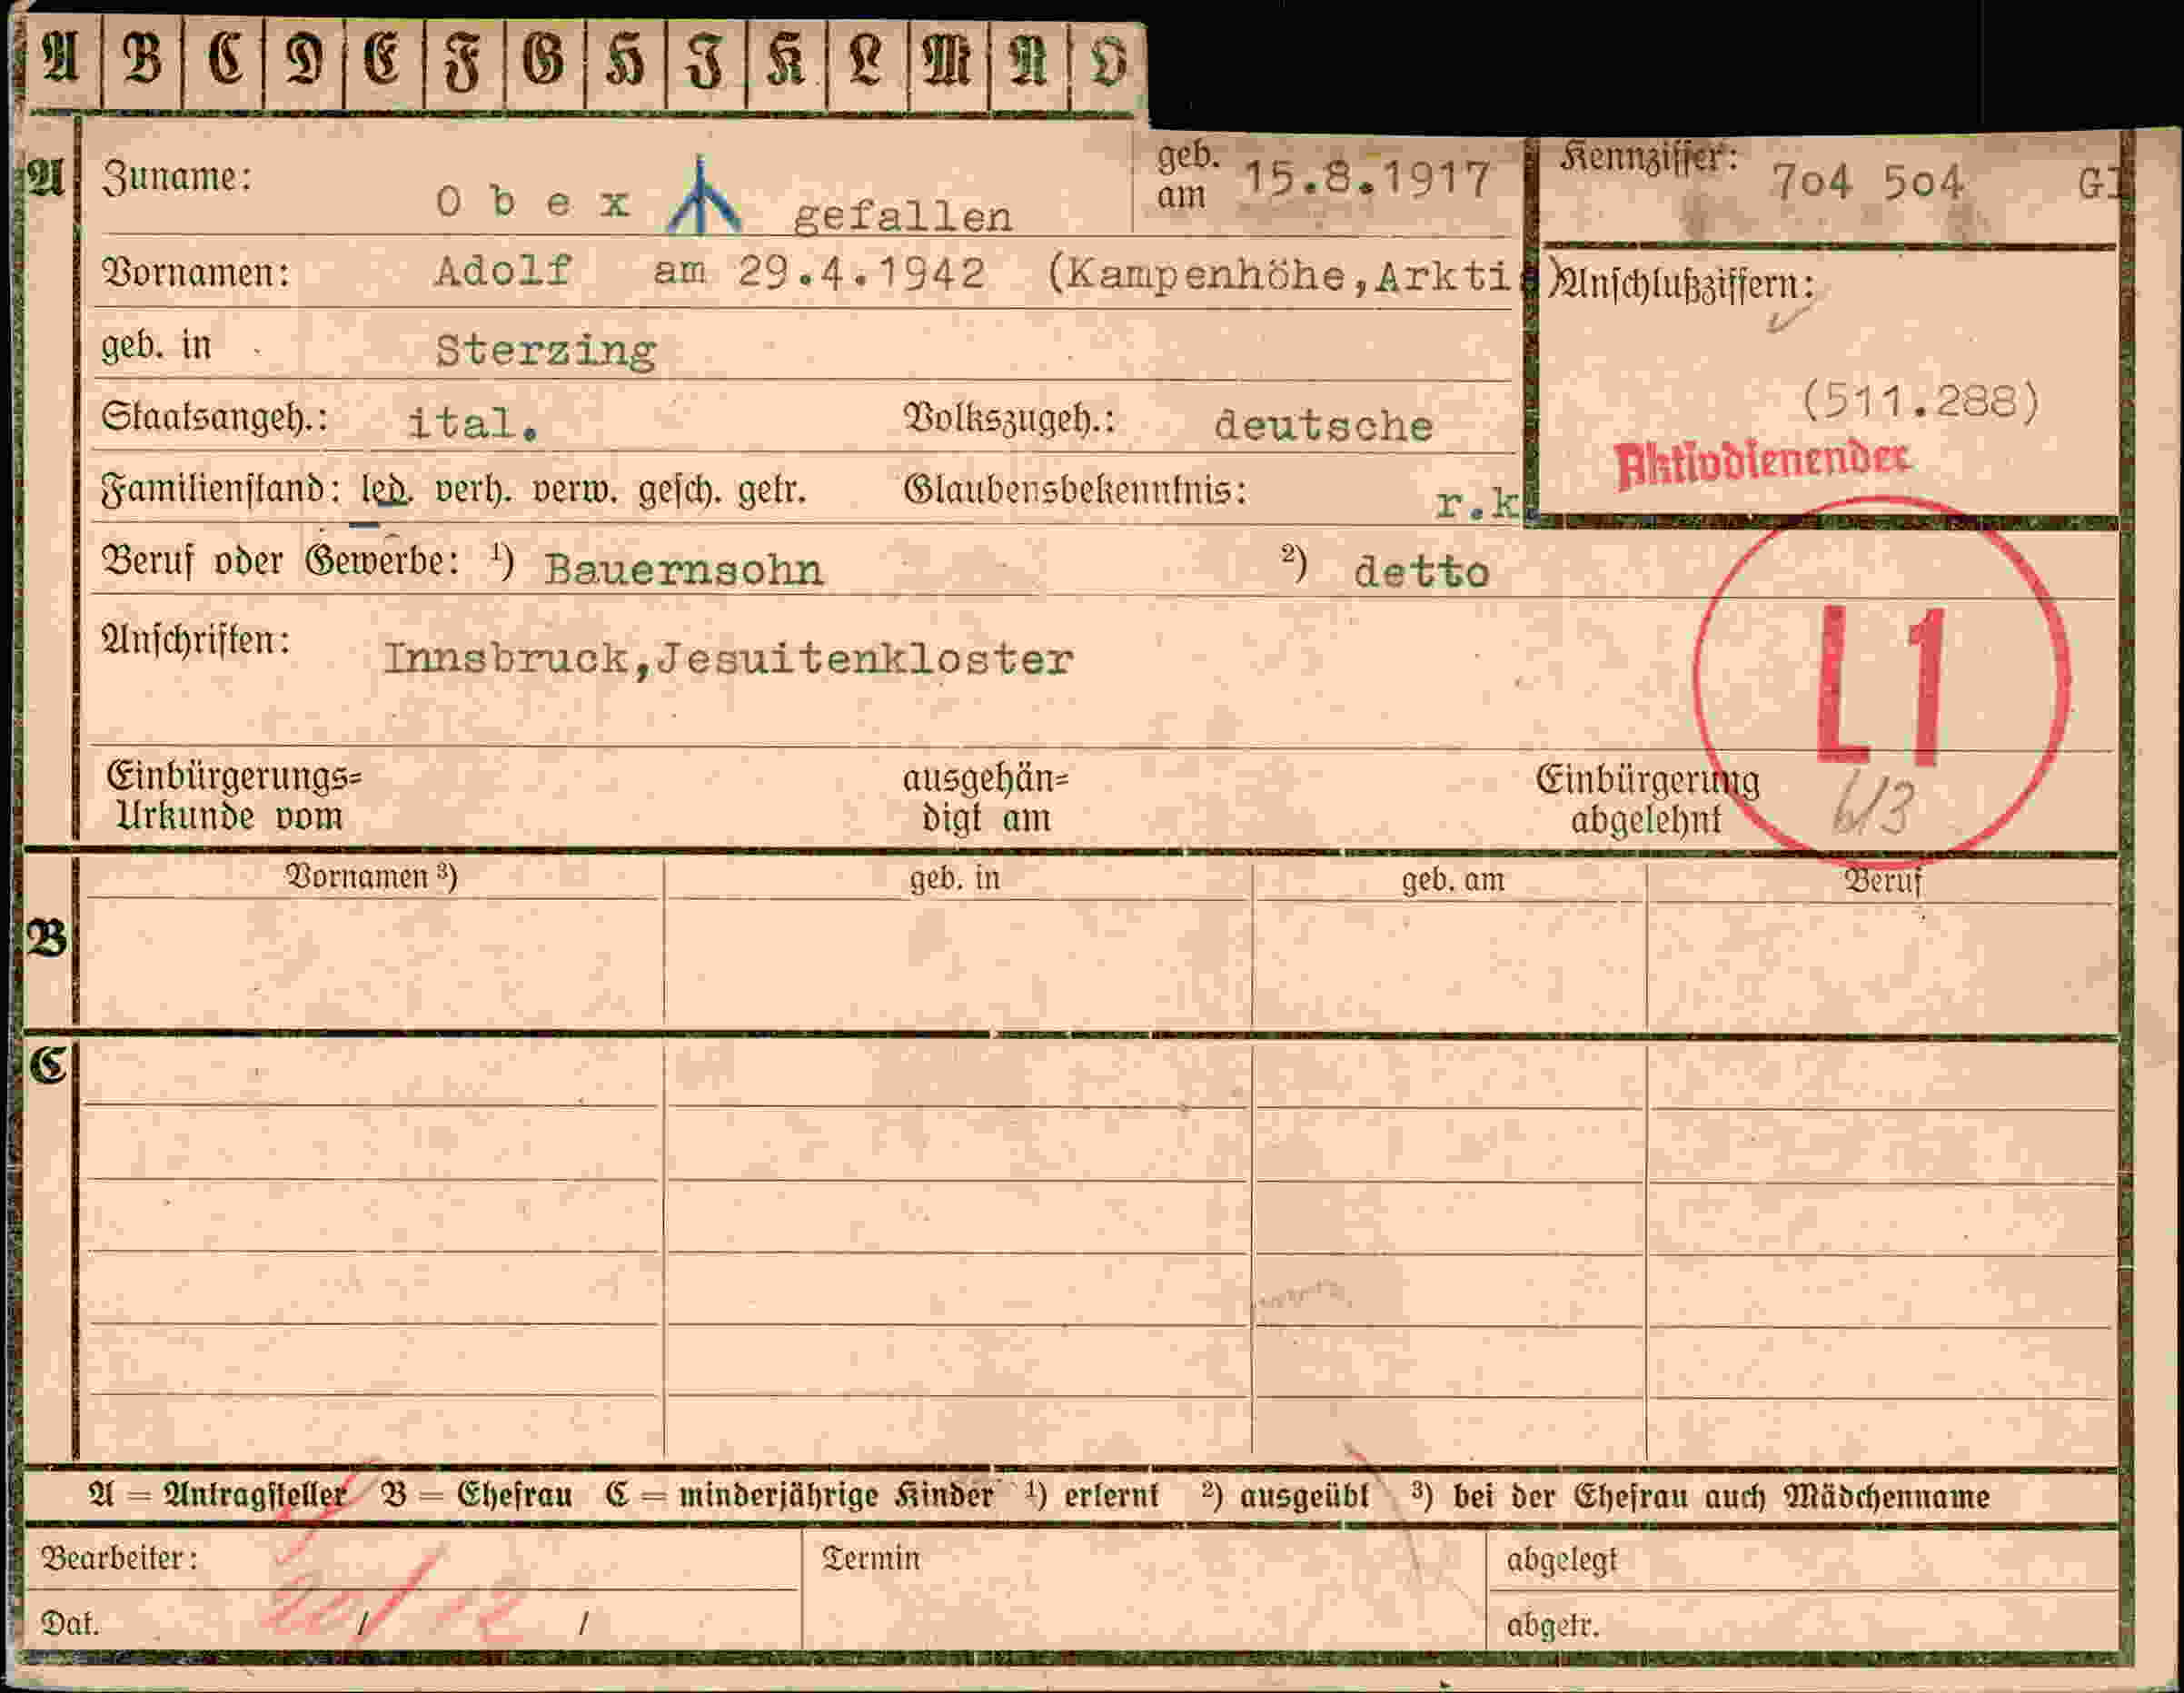 A B C D E F G H J K L M N O
A
Zuname: Obex gefallen
geb. am 15.8.1917
Kennziffer: 7o4 5o4
Vornamen: Adolf am 29.4.1942 (Kampenhöhe,Arkti )
Anschlußziffern:
geb. in Sterzing
(511.288)
Staatsangeh.: ital. Volkszugeh.: deutsche
Aktivdienender
Familienstand: led. verh. verw. gesch. getr. Glaubensbekenntnis: r.k.
Beruf oder Gewerbe: ¹) Bauernsohn ²) detto
Anschriften: Innsbruck,Jesuitenkloster
L1
Einbürgerungs=
Urkunde vom
ausgehän=
digt am
Einbürgerung
abgelehnt
B
Vornamen ³) geb. in geb. am Beruf
C
A = Antragsteller B = Ehefrau C = minderjährige Kinder ¹) erlernt ²) ausgeübt ³) bei der Ehefrau auch Mädchenname
Bearbeiter: Termin abgelegt
Dat. 20/12 / abgetr.